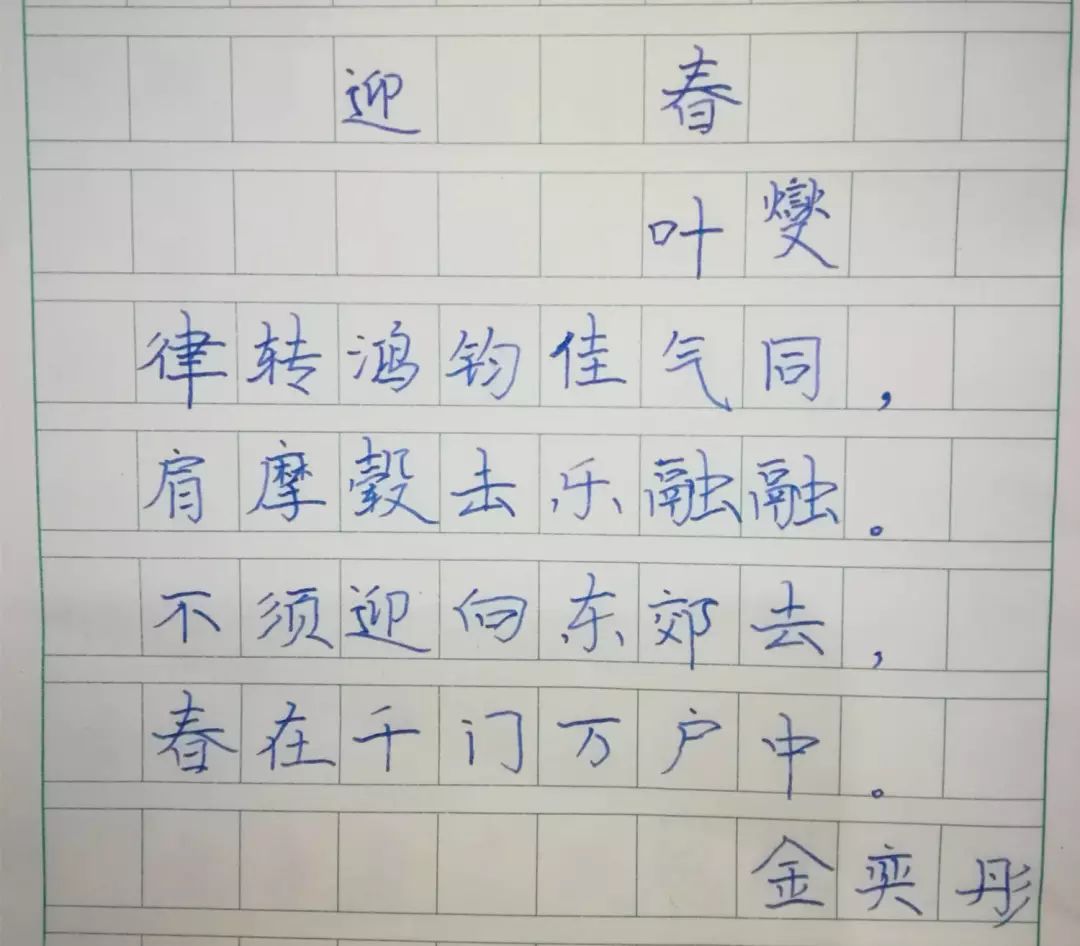 迎春
叶燮
律转鸿钧佳气同，
肩摩毂击乐融融。
不须迎向东郊去，
春在千门万户中。
金奕彤